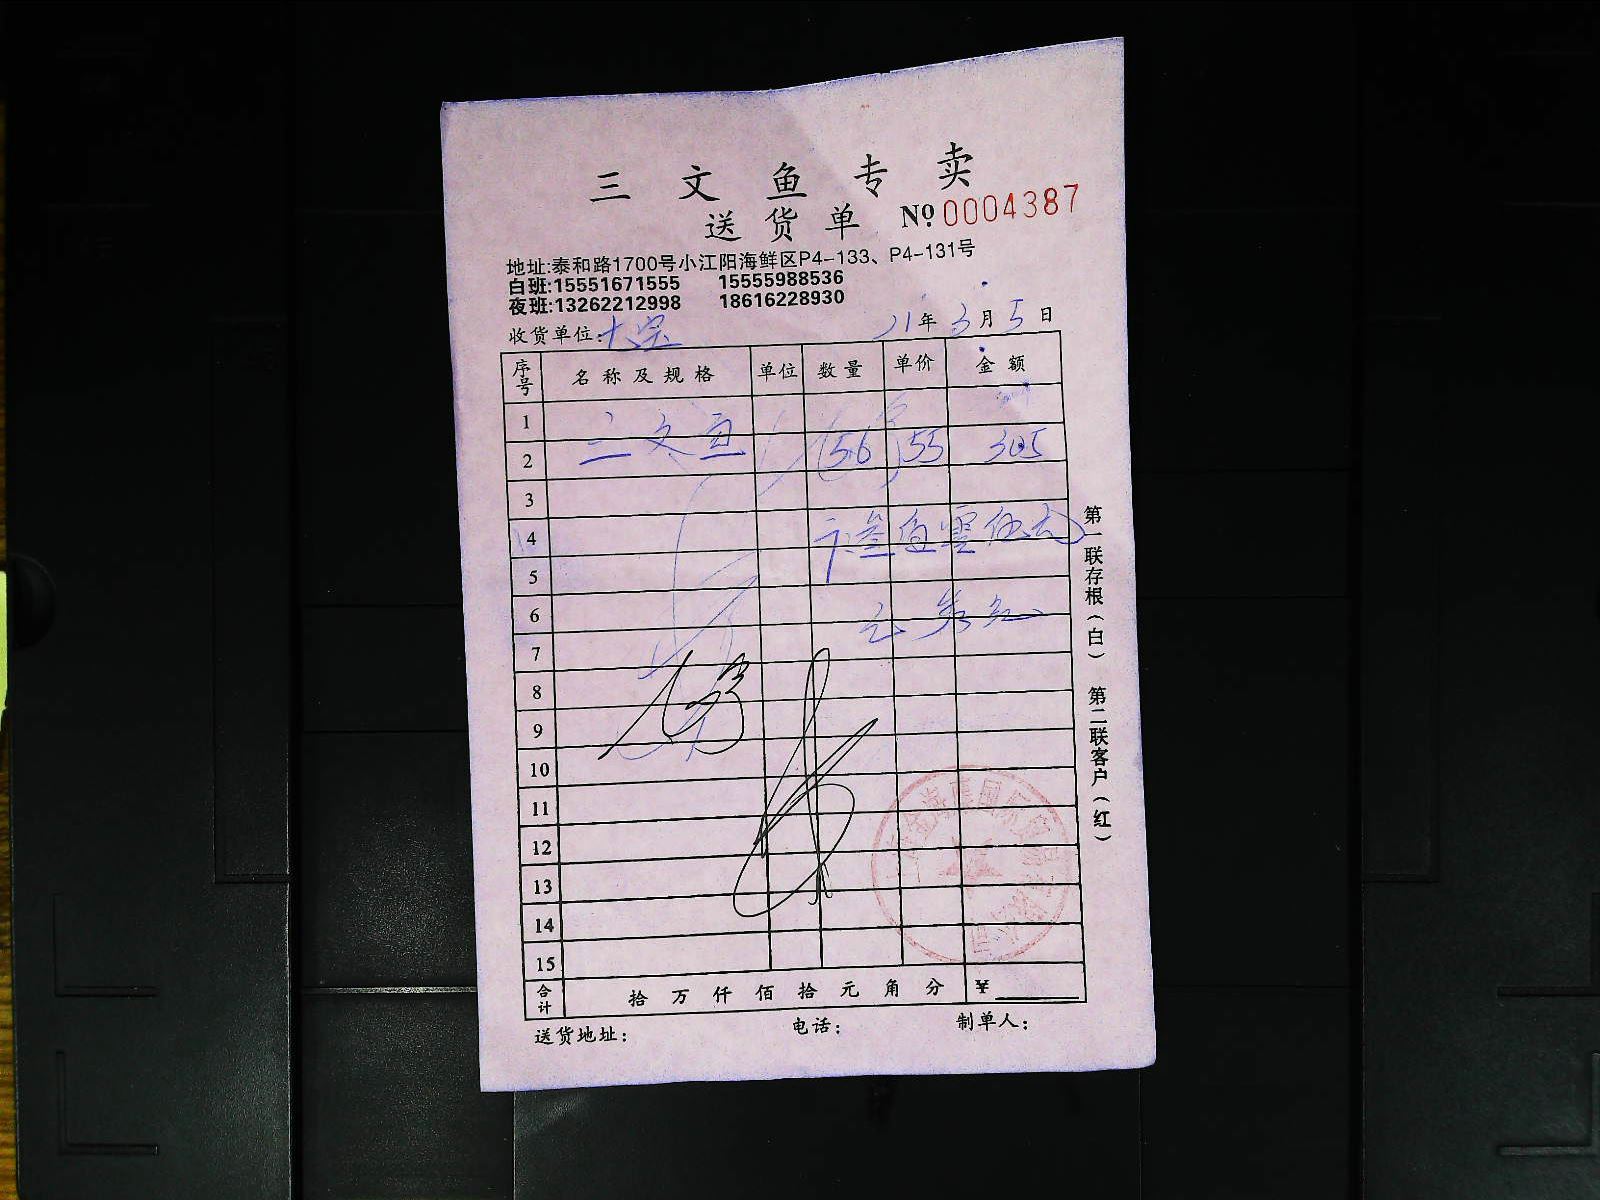 三文鱼专卖
送货单 № 0004387
地址:泰和路1700号小江阳海鲜区P4-133、P4-131号
白班:15551671555 15555988536
夜班:13262212998 18616228930
收货单位: 21年3月5日
序号 名称及规格 单位 数量 单价 金额
1
2 三文鱼 56 55 305
3
4 叁佰零伍元
5
6
7
8
9
10
11
12
13
14
15
合计 拾万仟佰拾元角分 ¥
送货地址: 电话: 制单人:
第一联存根(白) 第二联客户(红)